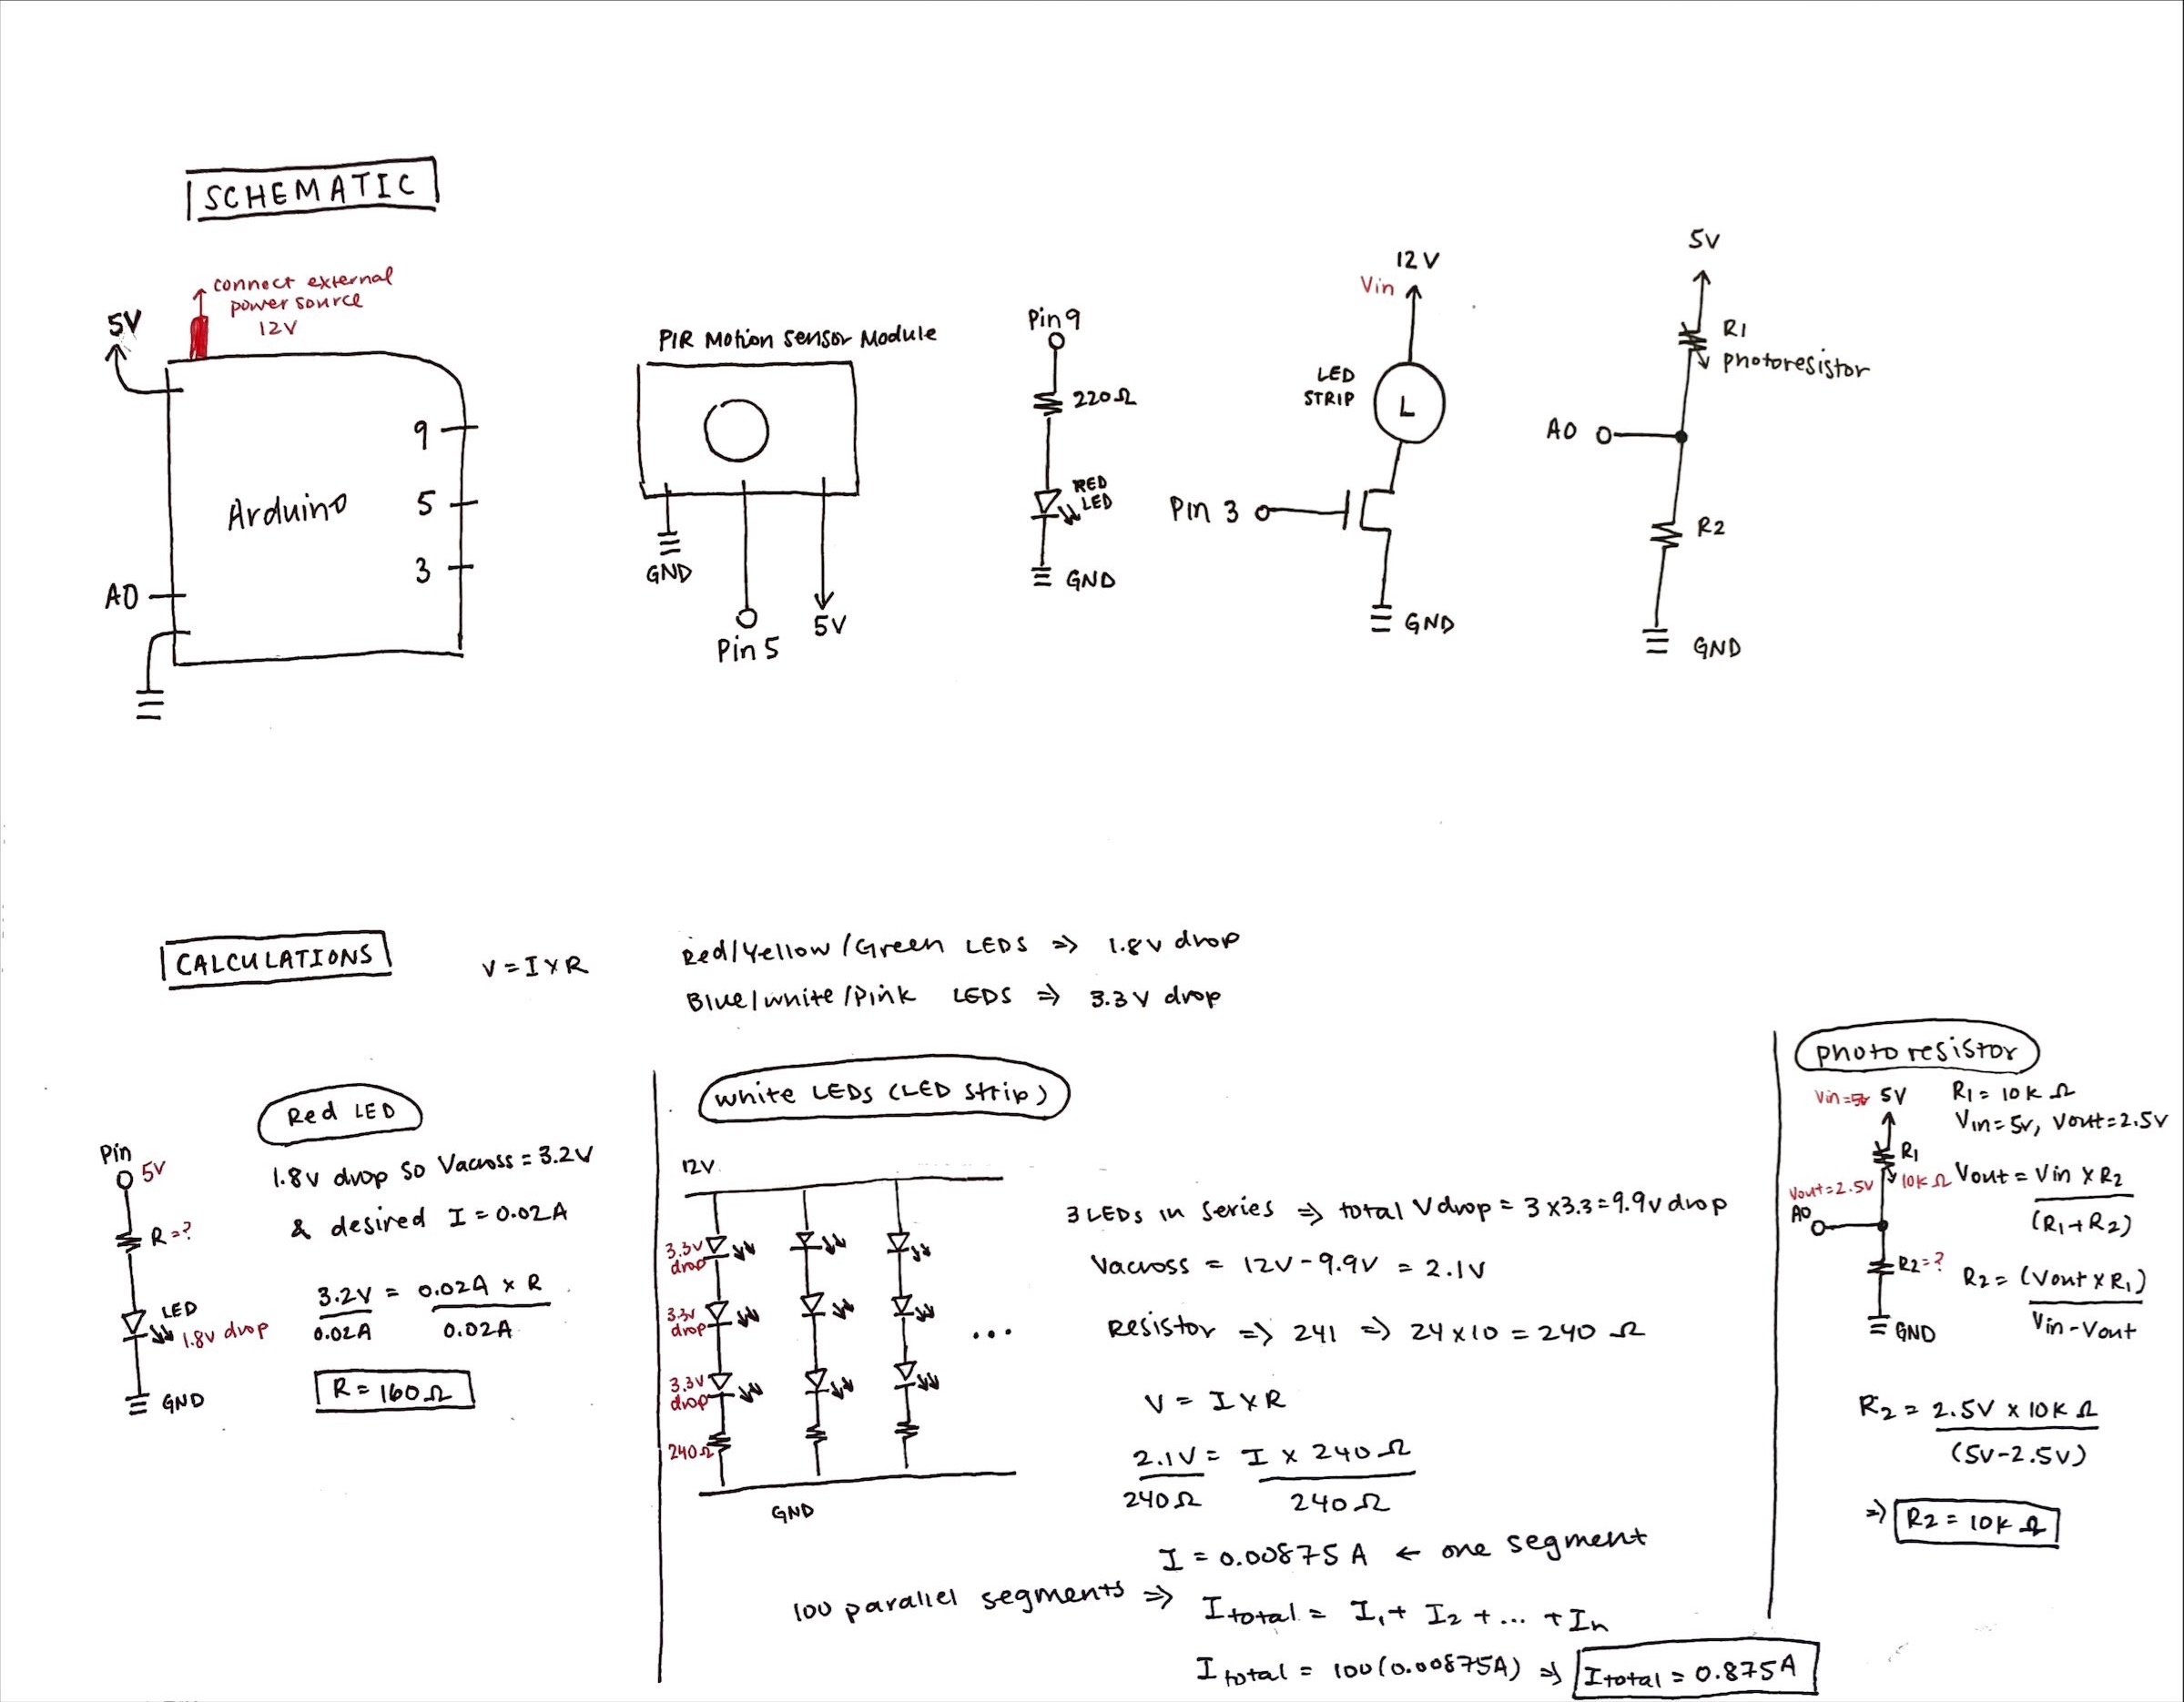 SCHEMATIC
connect external
power source
12V
5V
9
5
3
Arduino
A0
PIR Motion Sensor Module
GND
Pin 5
5V
Pin 9
220Ω
RED
LED
GND
12V
Vin
LED
STRIP
L
Pin 3
GND
5V
R1
photoresistor
A0
R2
GND
CALCULATIONS
V = I x R
Red/Yellow/Green LEDS ⇒ 1.8V drop
Blue/white/Pink LEDS ⇒ 3.3V drop
Red LED
Pin
5V
R=?
LED
1.8V drop
GND
1.8V drop so Vacross = 3.2V
& desired I = 0.02A
3.2V = 0.02A x R
0.02A 0.02A
R = 160Ω
white LEDs (LED strip)
12V
3.3V
drop
3.3V
drop
3.3V
drop
240Ω
GND
...
3 LEDs in series ⇒ total Vdrop = 3 x3.3=9.9V drop
Vacross = 12V-9.9V = 2.1V
Resistor ⇒ 241 ⇒ 24 x 10 = 240 Ω
V = I x R
2.1V = I x 240 Ω
240Ω 240Ω
I = 0.00875 A ← one segment
100 parallel segments ⇒ Itotal = I1+ I2 + ... + In
Itotal = 100(0.00875A) ⇒ Itotal = 0.875A
photoresistor
Vin=5V 5V
R1 = 10K Ω
Vin= 5V, Vout=2.5V
R1
10KΩ
Vout=2.5V
A0
R2=?
GND
Vout = Vin x R2
(R1+R2)
R2 = (Vout x R1)
Vin-Vout
R2 = 2.5V x 10K Ω
(5V-2.5V)
⇒ R2 = 10K Ω